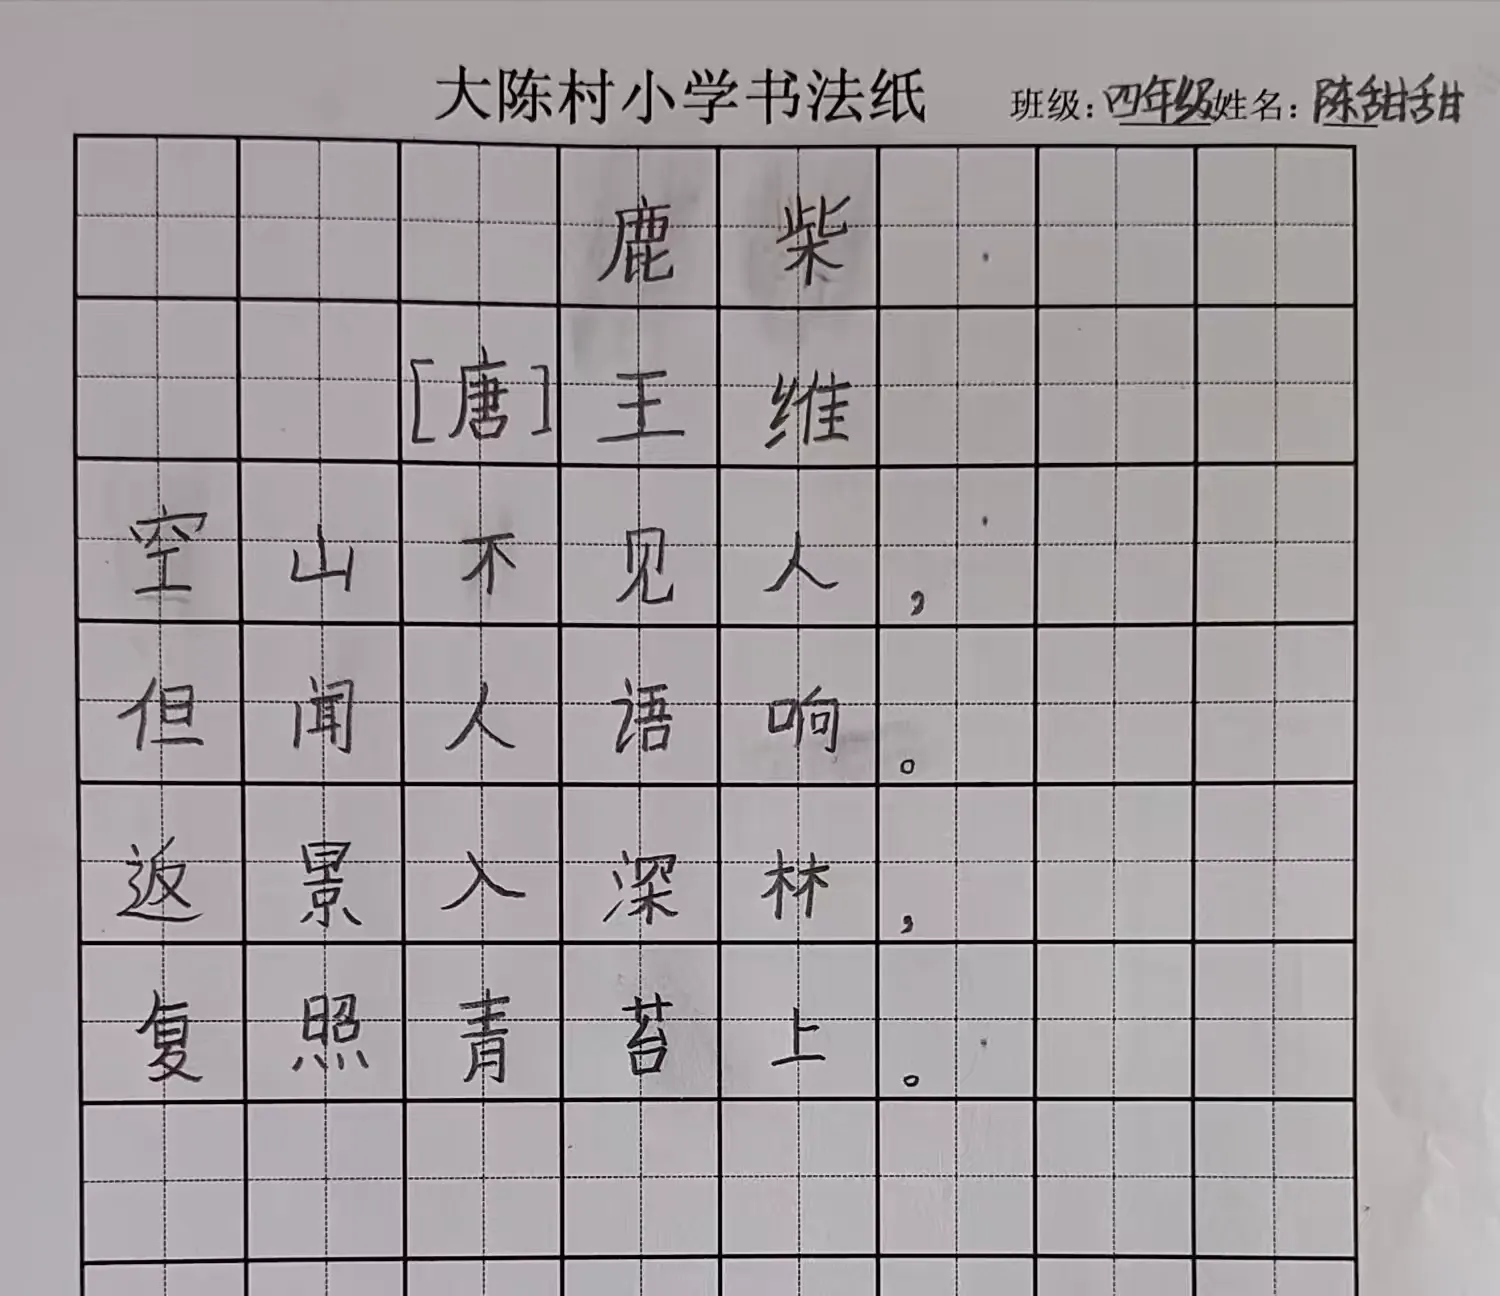 大陈村小学书法纸 班级：四年级 姓名：陈甜甜
鹿柴
[唐]王维
空山不见人，
但闻人语响。
返景入深林，
复照青苔上。